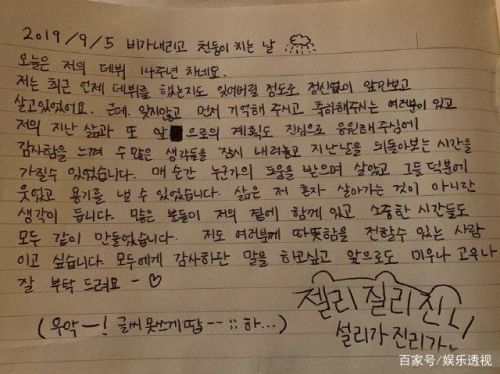 2019/9/5 비가내리고 천둥이 치는 날
오늘은 저의 데뷔 14주년 차네요.
저는 최근 언제 데뷔를 했는지도 잊어버릴 정도로 정신없이 앞만보고
살고있었어요. 근데, 잊지않고 먼저 기억해 주시고 축하해주시는 여러분이 있고
저의 지난 삶과 또 앞으로의 계획도 진심으로 응원해주심에
감사함을 느껴 수많은 생각들을 잠시 내려놓고 지난날을 되돌아보는 시간을
가질수 있었습니다. 매 순간 누군가의 도움을 받으며 살았고 그들 덕분에
웃었고 용기를 낼 수 있었습니다. 삶은 저 혼자 살아가는 것이 아니란
생각이 듭니다. 많은 분들이 저의 곁에 함께 있고 소중한 시간들도
모두 같이 만들었습니다. 저도 여러분께 따뜻함을 전할수 있는 사람
이고 싶습니다. 모두에게 감사하단 말을 하고싶고 앞으로도 미우나 고우나
잘 부탁 드려요 - ♡
젤리 질리 진
설리가 진리가
(우악-! 글씨 못쓰게땁-- :: 하...)
百家号/娱乐透视